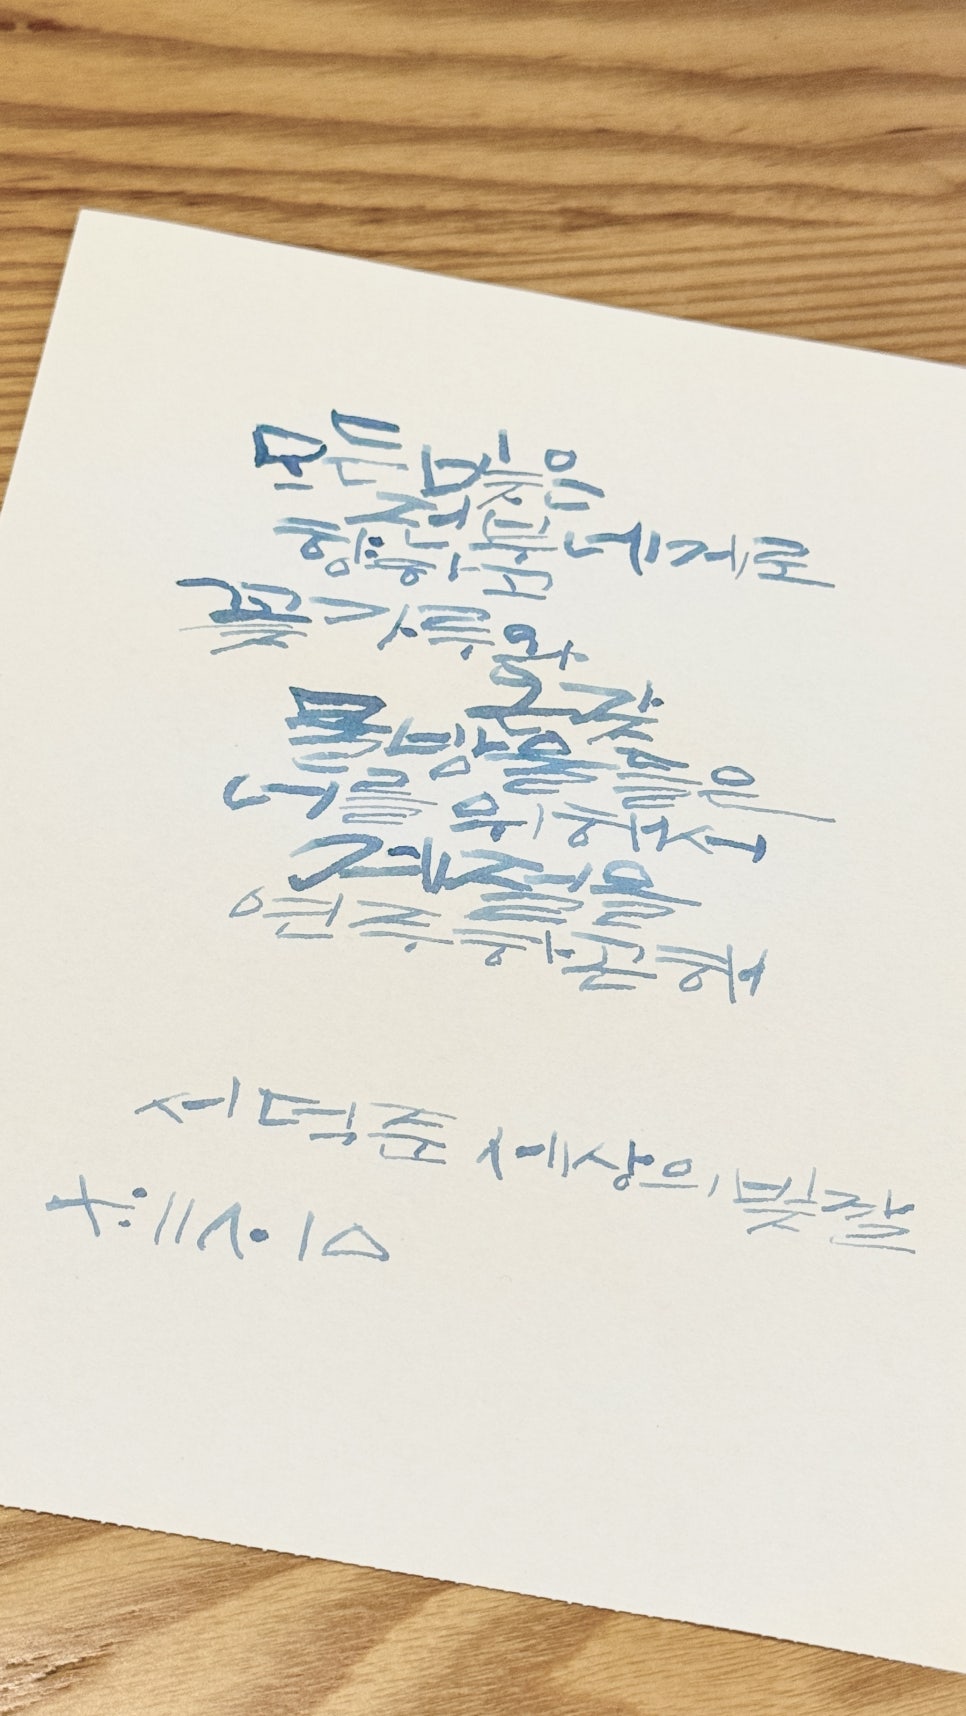 모든 빛은
전부 네게로
향하고
꽃가루와
온갖
물방울들은
너를 위해서
계절을
연주하곤 해
서덕준 세상의 빛깔